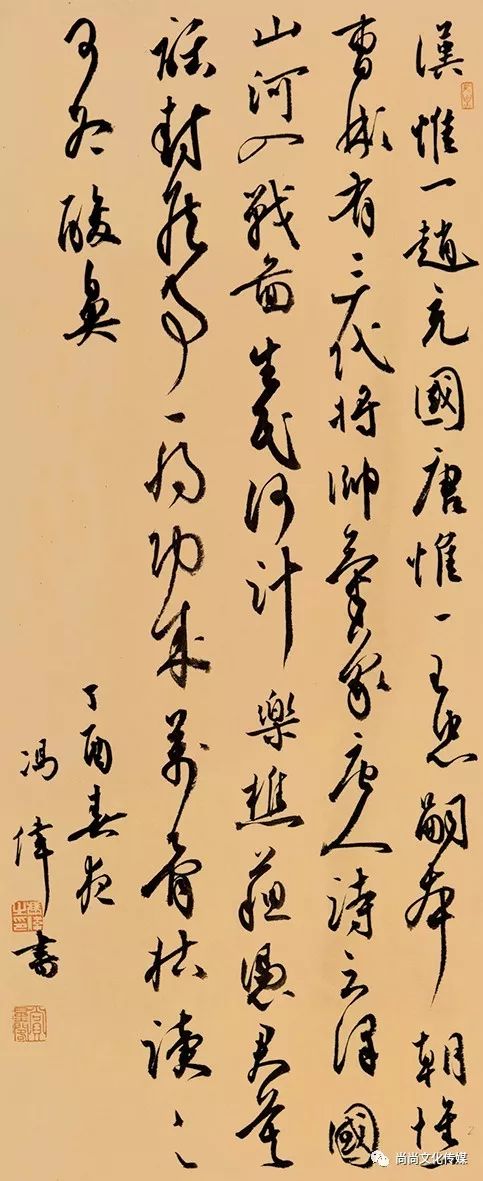 漢惟一趙充國唐惟一王忠嗣本朝惟
曹彬有三代將帥氣象唐人詩云澤國
山河入戰圖生民何計樂樵蘇憑君莫
話封侯事一將功成萬骨枯讀之
可為酸鼻
丁酉春夜
馮偉書
尚尚文化传媒